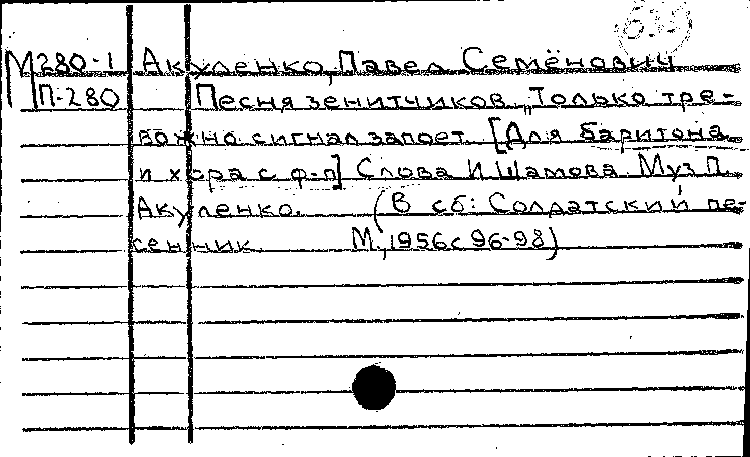 М280-1 Акуленко, Павел Семёнович
П-280 Песня зенитчиков. „Только тре-
вожно сигнал запоет. [Для баритона
и хора с ф-п] Слова И. Шамова. Муз. П.
Акуленко. (В сб: Солдатский пе-
сенник. М., 1956 с 96-98)